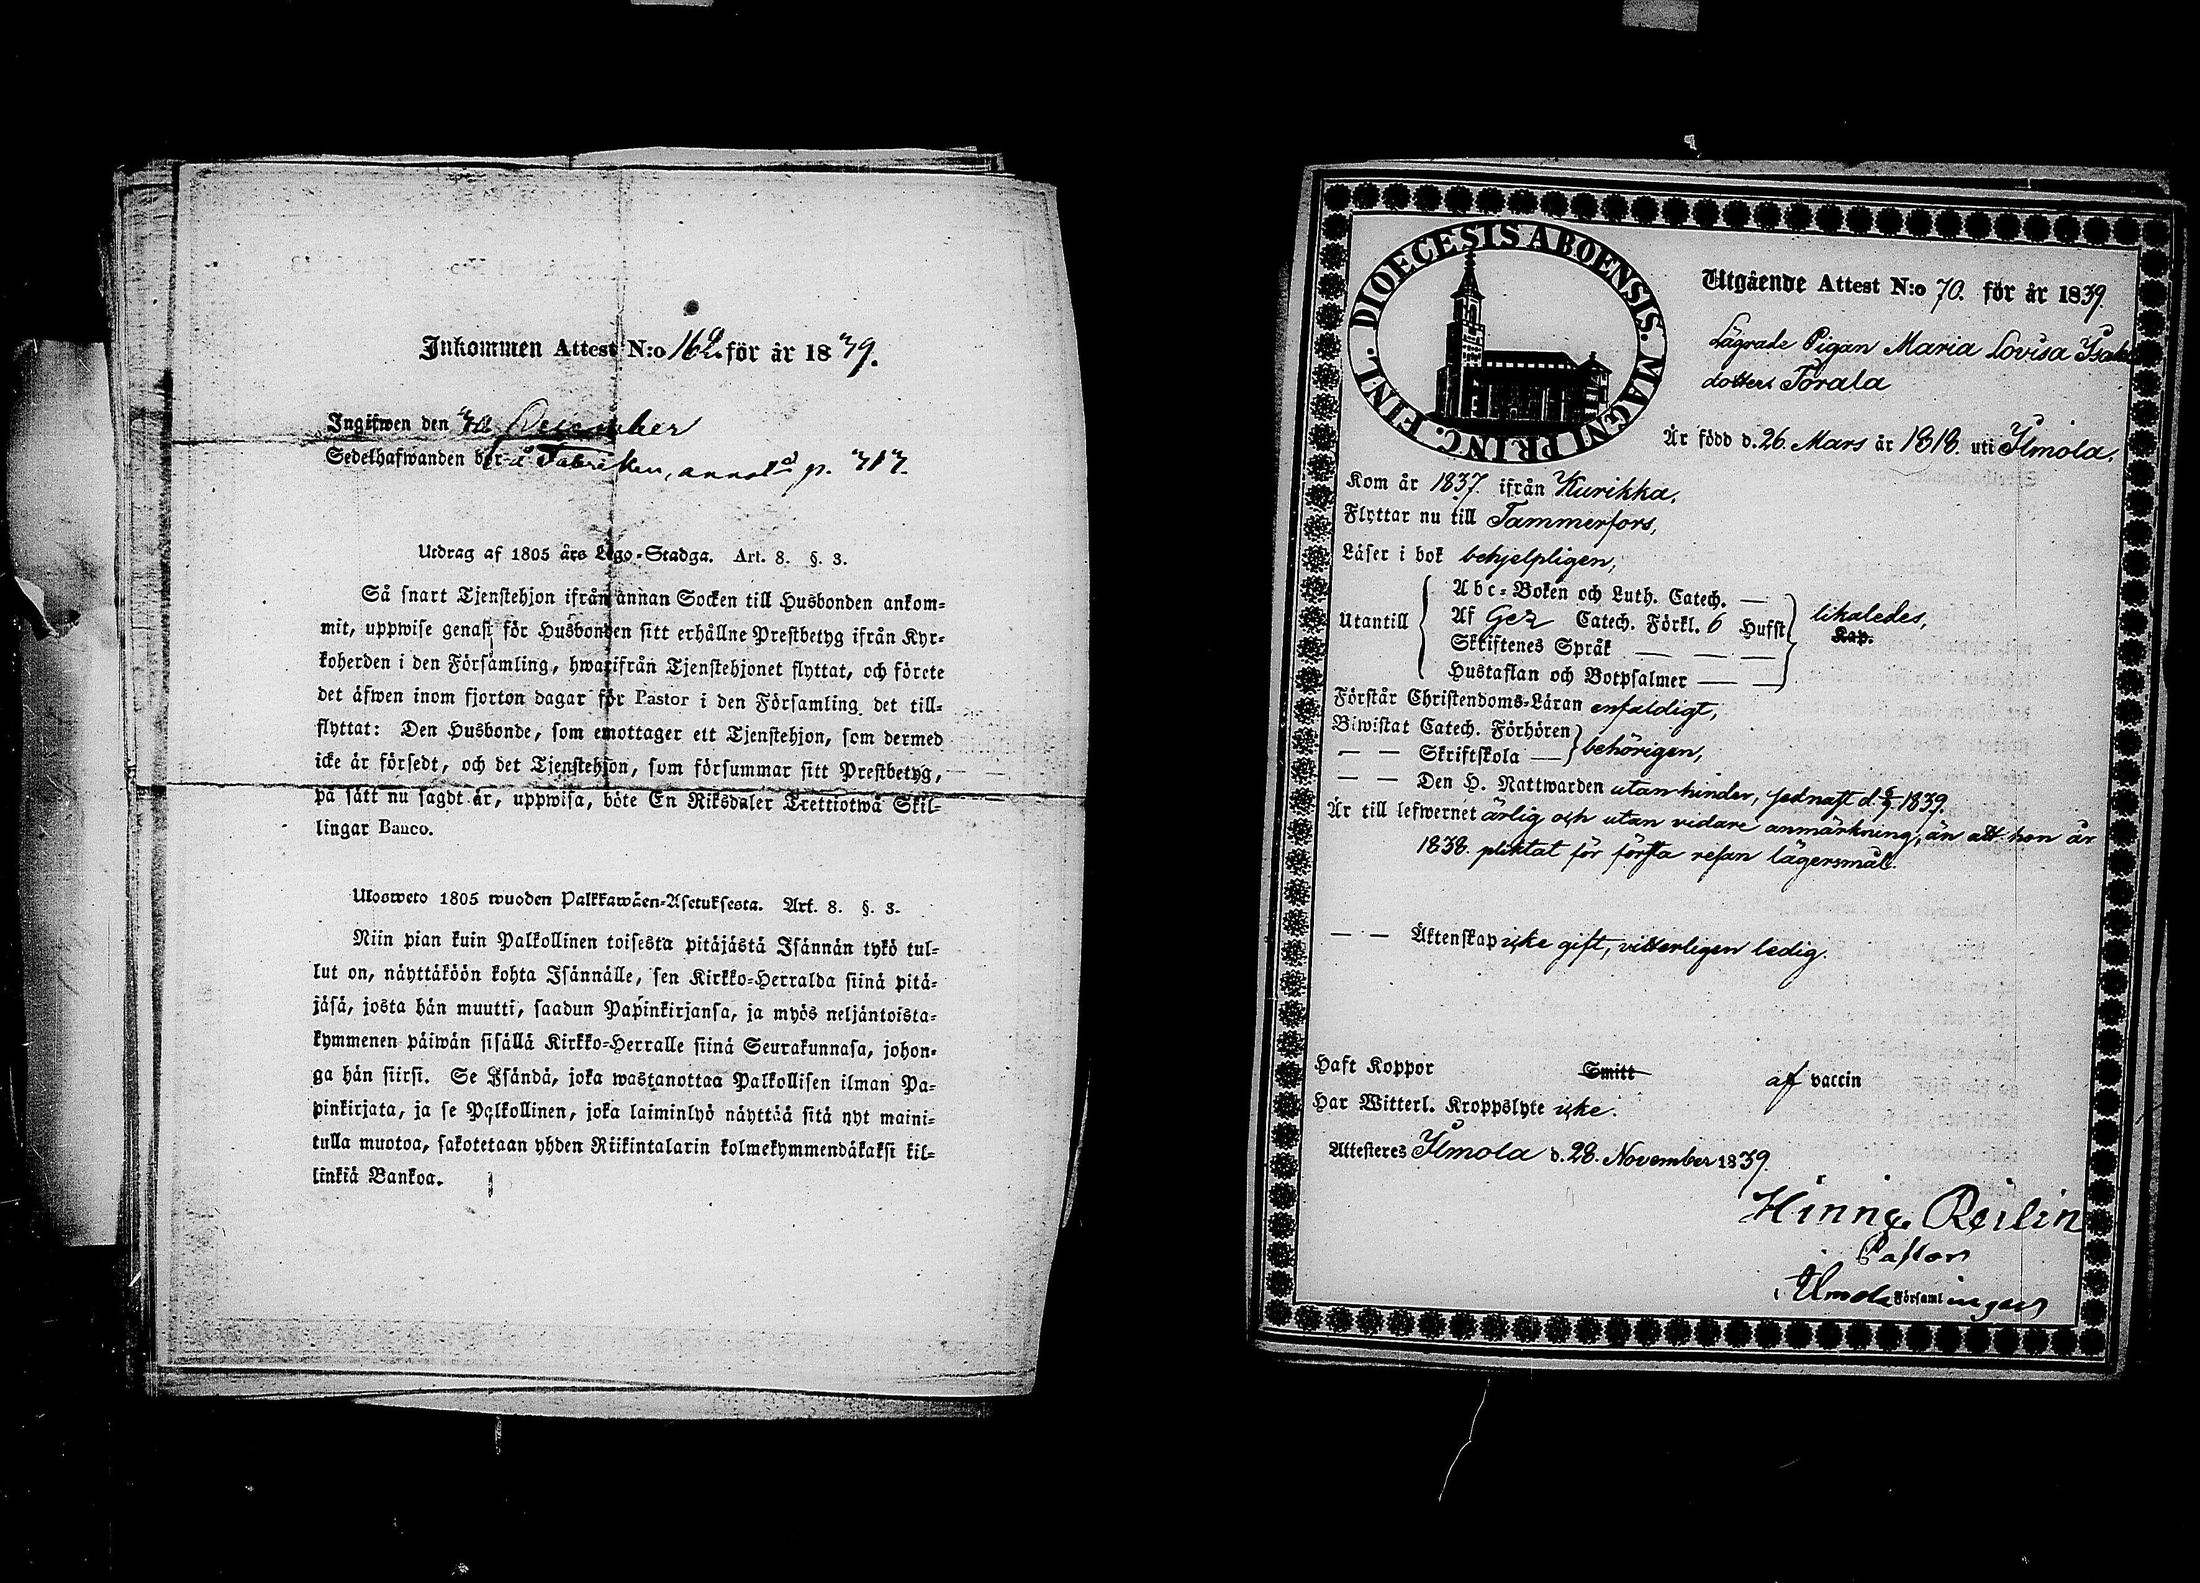 Inkommen Attest N:o 162. för år 1839.
Ingifwen den December
Sedelhafwanden bor å Fabriken, annot. p. 313.
Utdrag af 1805 års Lego-Stadga. Art. 8. §. 3.
Så snart Tjenstehjon ifrån annan Socken till Husbonden ankom-
mit, uppwise genast för Husbonden sitt erhållne Prestbetyg ifrån Kyr-
koherden i den Församling, hwarifrån Tjenstehjonet flyttat, och förete
det äfwen inom fjorton dagar för Pastor i den Församling det till-
flyttat: Den Husbonde, som emottager ett Tjenstehjon, som dermed
icke är försedt, och det Tjenstehjon, som försummar sitt Prestbetyg,
på sätt nu sagdt är, uppwisa, böte En Riksdaler Trettiotwå Skil-
lingar Banco.
Ulosweto 1805 wuoden Palkkawäen-Asetuksesta. Art. 8. §. 3.
Niin pian kuin Palkollinen toisesta pitäjästä Isännän tykö tul-
lut on, näyttäköön kohta Isännälle, sen Kirkko-Herralda siinä pitä-
jäsä, josta hän muutti, saadun Papinkirjansa, ja myös neljäntoista-
kymmenen päiwän sisällä Kirkko-Herralle siinä Seurakunnasa, johon-
ga hän siirsi. Se Isändä, joka wastanottaa Palkollisen ilman Pa-
pinkirjata, ja se Palkollinen, joka laiminlyö näyttää sitä nyt maini-
tulla muotoa, sakotetaan yhden Riikintalarin kolmekymmendäkaksi kil-
linkiä Bankoa.
DIOECESIS ABOENSIS. MAGNI PRINC. FINL.
Utgående Attest N:o 70. för år 1839.
Lägrade Pigan Maria Lovisa Isaks
dotter Torala
Är född d. 26. Mars år 1818. uti Ilmola.
Kom år 1837. ifrån Kurikka,
Flyttar nu till Tammerfors,
Läser i bok behjelpligen,
Abc-Boken och Luth. Catech. —
Utantill Af Gez Catech. Förkl. 6 Hufst likaledes,
Kap.
Skriftenes Språk — — —
Hustaflan och Botpsalmer — —
Förstår Christendoms-Läran enfaldigt,
Biwistat Catech. Förhören
— — Skriftskola — behörigen,
— — Den H. Nattwarden utan hinder, sednast d. 1839.
Är till lefwernet ärlig och utan vidare anmärkning, än att hon år
1838. pliktat för första resan lägersmål.
— — Äktenskap icke gift, vitterligen ledig.
Haft Koppor Smitt af vaccin
Har Witterl. Kroppslyte icke.
Attesteres Ilmola d. 28. November 1839.
Hinric Reilin
Pastor
i Ilmola Församlingar